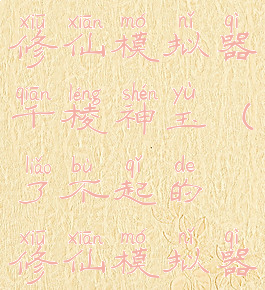 xiū xiān mó nǐ qì
修仙模拟器
qiān léng shén yù
千棱神玉（
liǎo bù qǐ de
了不起的
xiū xiān mó nǐ qì
修仙模拟器